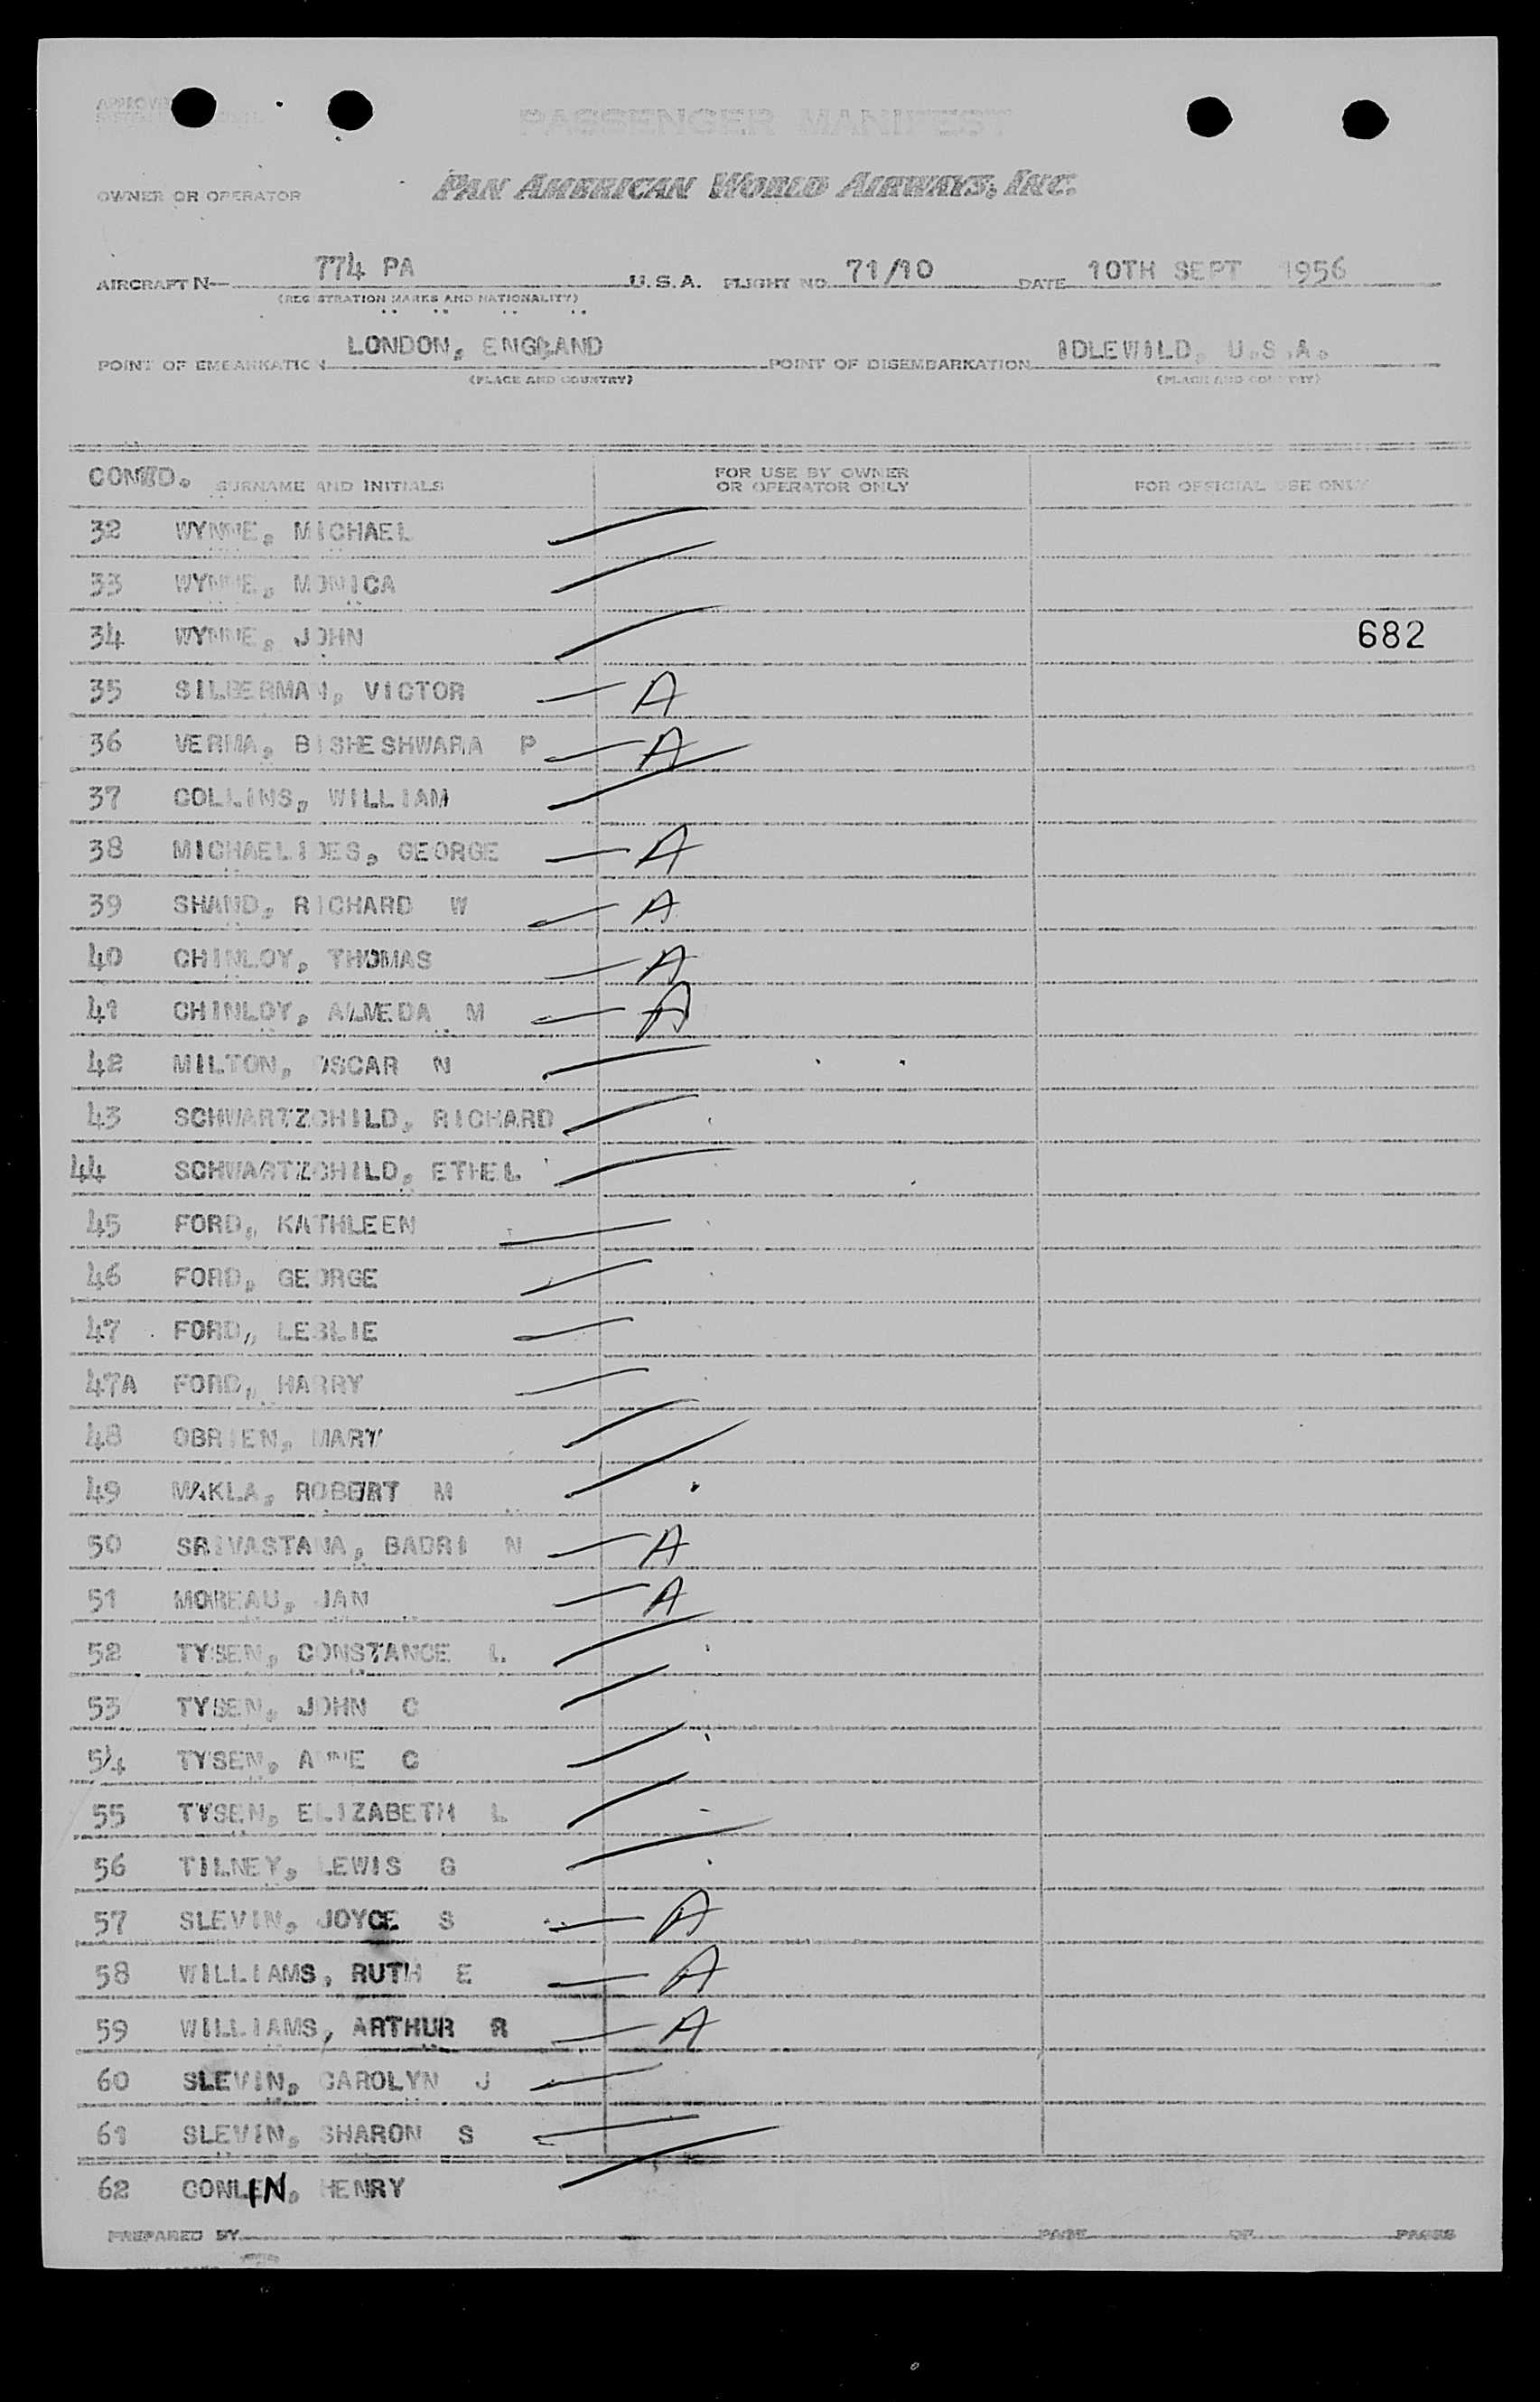 PASSENGER MANIFEST
OWNER OR OPERATOR PAN AMERICAN WORLD AIRWAYS, INC.
AIRCRAFT N- 774 PA U.S.A. FLIGHT NO. 71/10 DATE 10TH SEPT 1956
(REGISTRATION MARKS AND NATIONALITY)
POINT OF EMBARKATION LONDON, ENGLAND POINT OF DISEMBARKATION IDLEWILD, U.S.A.
(PLACE AND COUNTRY) (PLACE AND COUNTRY)
CONTD. SURNAME AND INITIALS FOR USE BY OWNER OR OPERATOR ONLY FOR OFFICIAL USE ONLY
32 WYNNE, MICHAEL
33 WYNNE, MONICA
34 WYNNE, JOHN 682
35 SILBERMAN, VICTOR A
36 VERMA, BISHESHWARA P A
37 COLLINS, WILLIAM
38 MICHAELIDES, GEORGE A
39 SHAND, RICHARD W A
40 CHINLOY, THOMAS A
41 CHINLOY, ALMEDA M A
42 MILTON, OSCAR N
43 SCHWARTZCHILD, RICHARD
44 SCHWARTZCHILD, ETHEL
45 FORD, KATHLEEN
46 FORD, GEORGE
47 FORD, LESLIE
47A FORD, HARRY
48 OBRIEN, MARY
49 MAKLA, ROBERT M
50 SRIVASTANA, BADRI N A
51 MOREAU, JAN A
52 TYSEN, CONSTANCE L
53 TYSEN, JOHN C
54 TYSEN, ANNE C
55 TYSEN, ELIZABETH L
56 TILNEY, LEWIS G
57 SLEVIN, JOYCE S A
58 WILLIAMS, RUTH E A
59 WILLIAMS, ARTHUR R A
60 SLEVIN, CAROLYN J
61 SLEVIN, SHARON S
62 CONLIN, HENRY
PREPARED BY PAGE OF PAGES